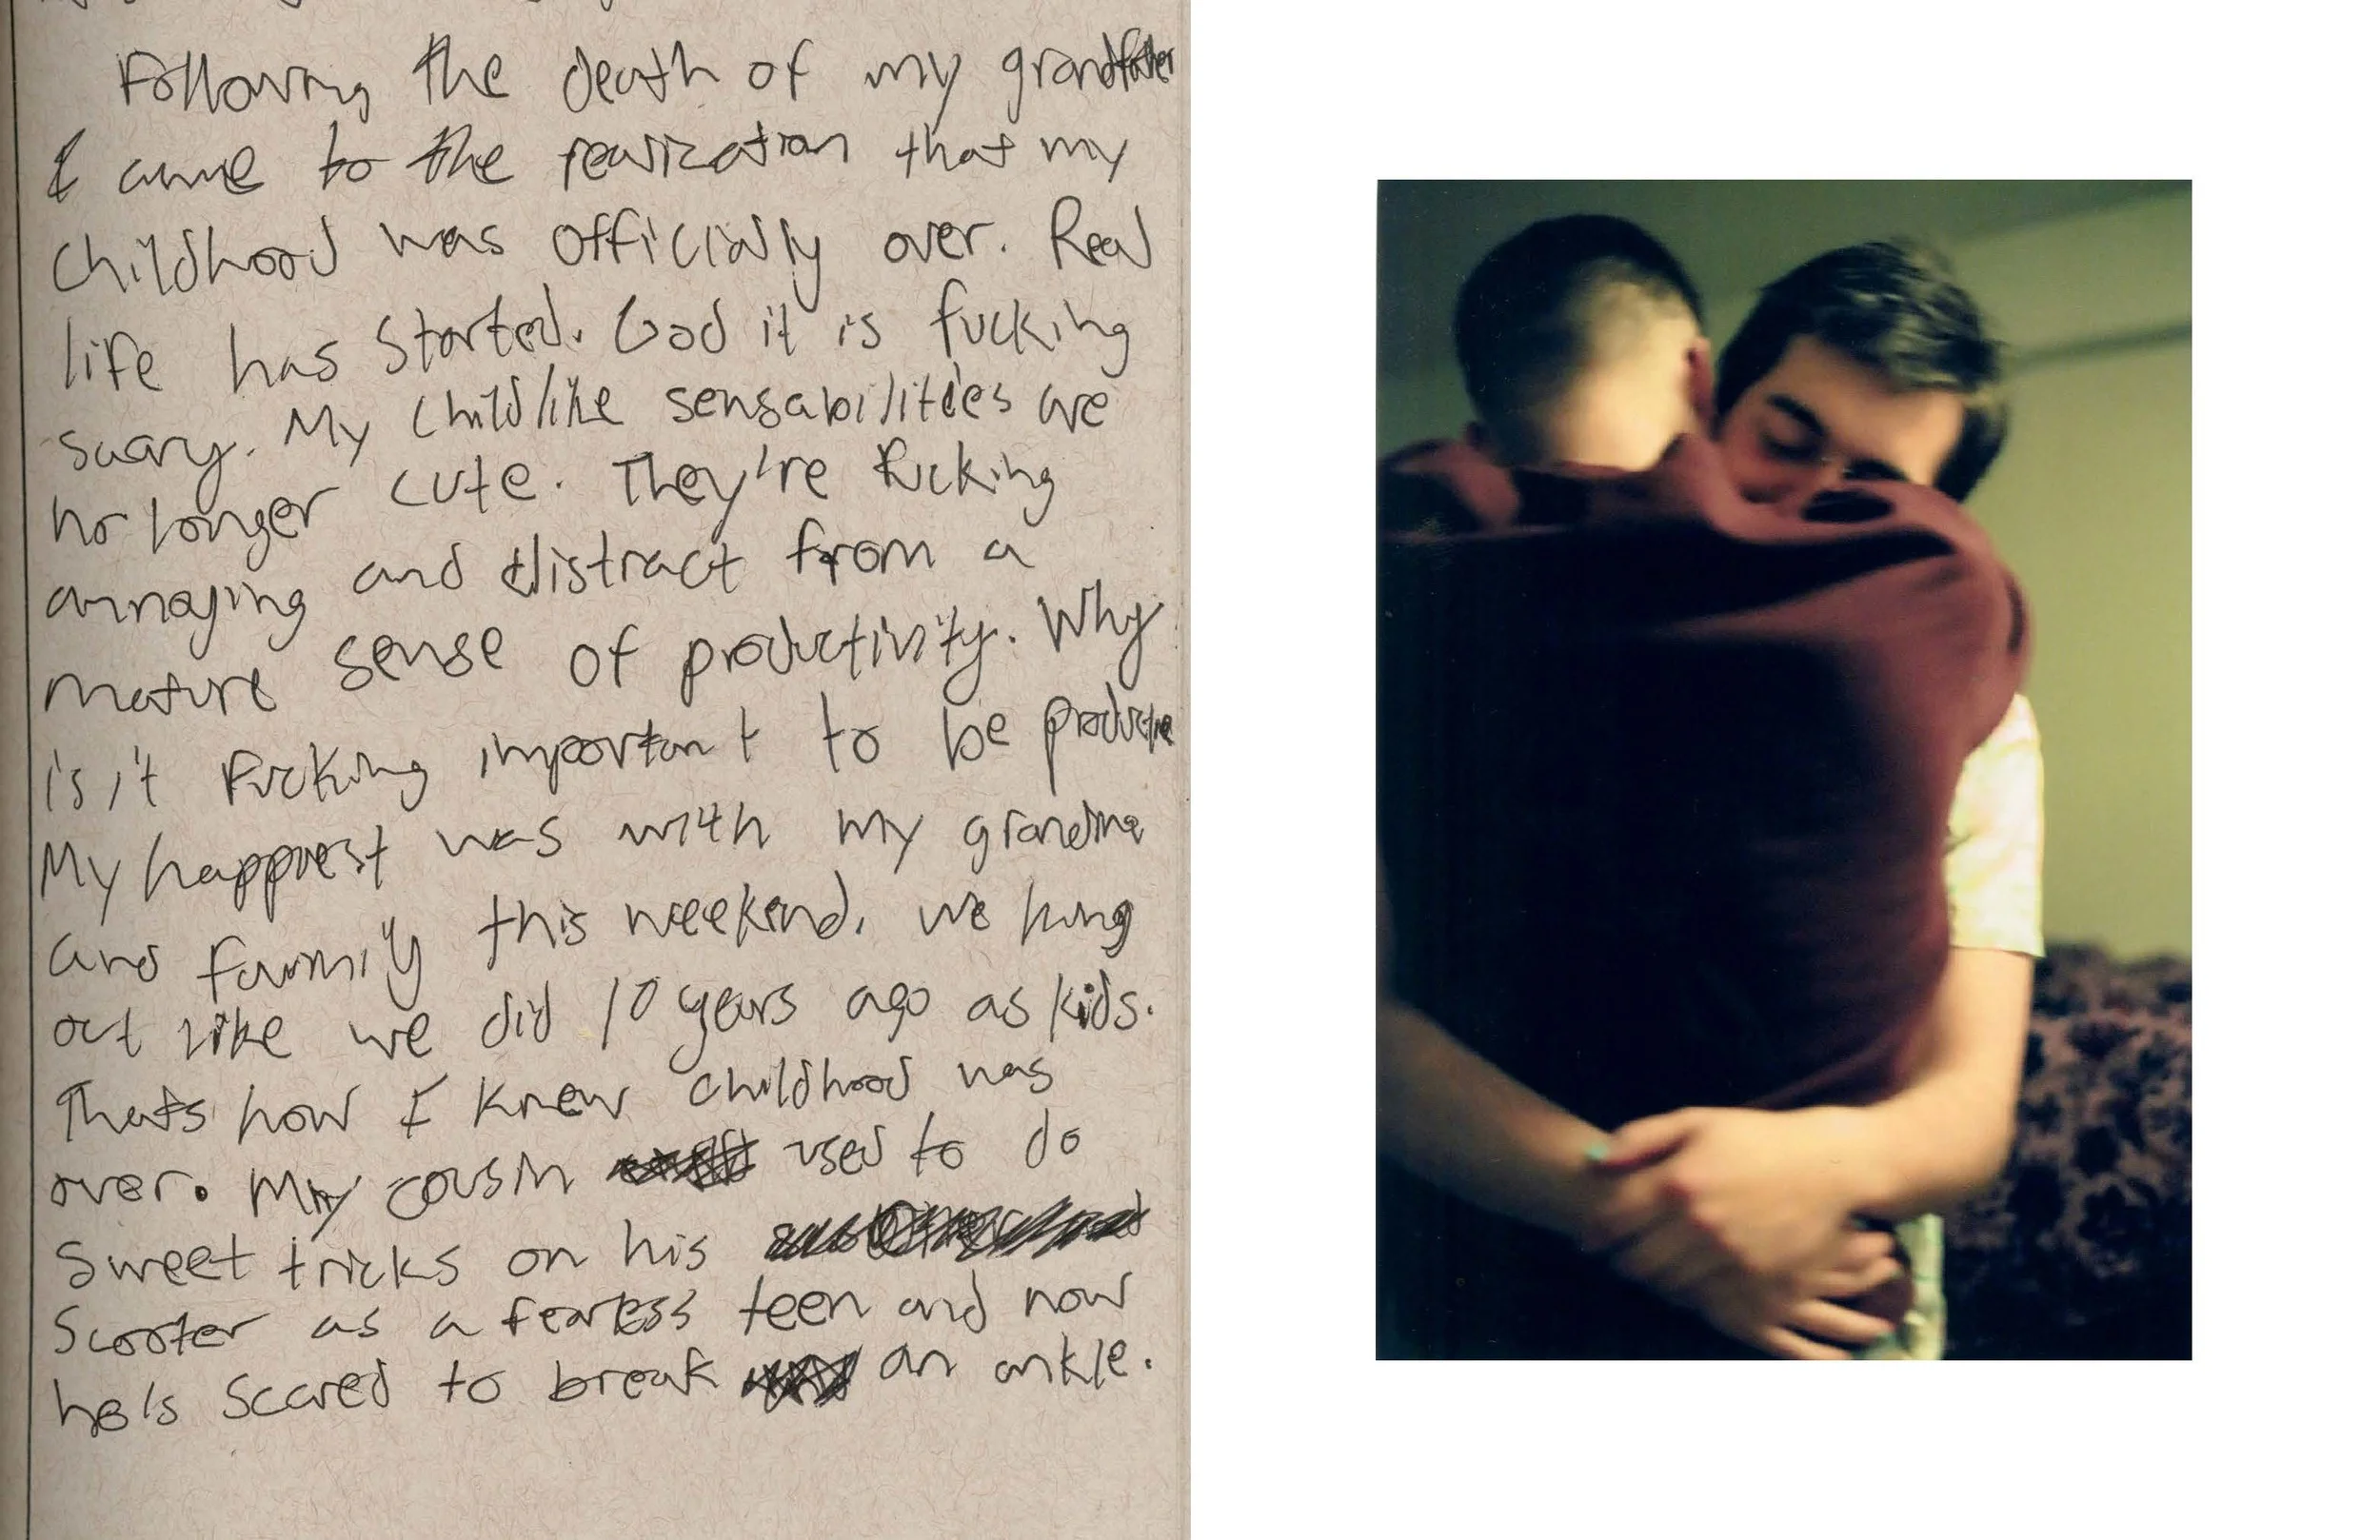 Following the death of my grandfather
I came to the realization that my
childhood was officially over. Real
life has started. God it is fucking
scary. My childlike sensabilities are
no longer cute. They're fucking
annoying and distract from a
mature sense of productivity. Why
is it fucking important to be productive
My happiest was with my grandma
and family this weekend. we hung
out like we did 10 years ago as kids.
Thats how I knew childhood was
over. My cousin used to do
sweet tricks on his
scooter as a fearless teen and now
he's scared to break an ankle.